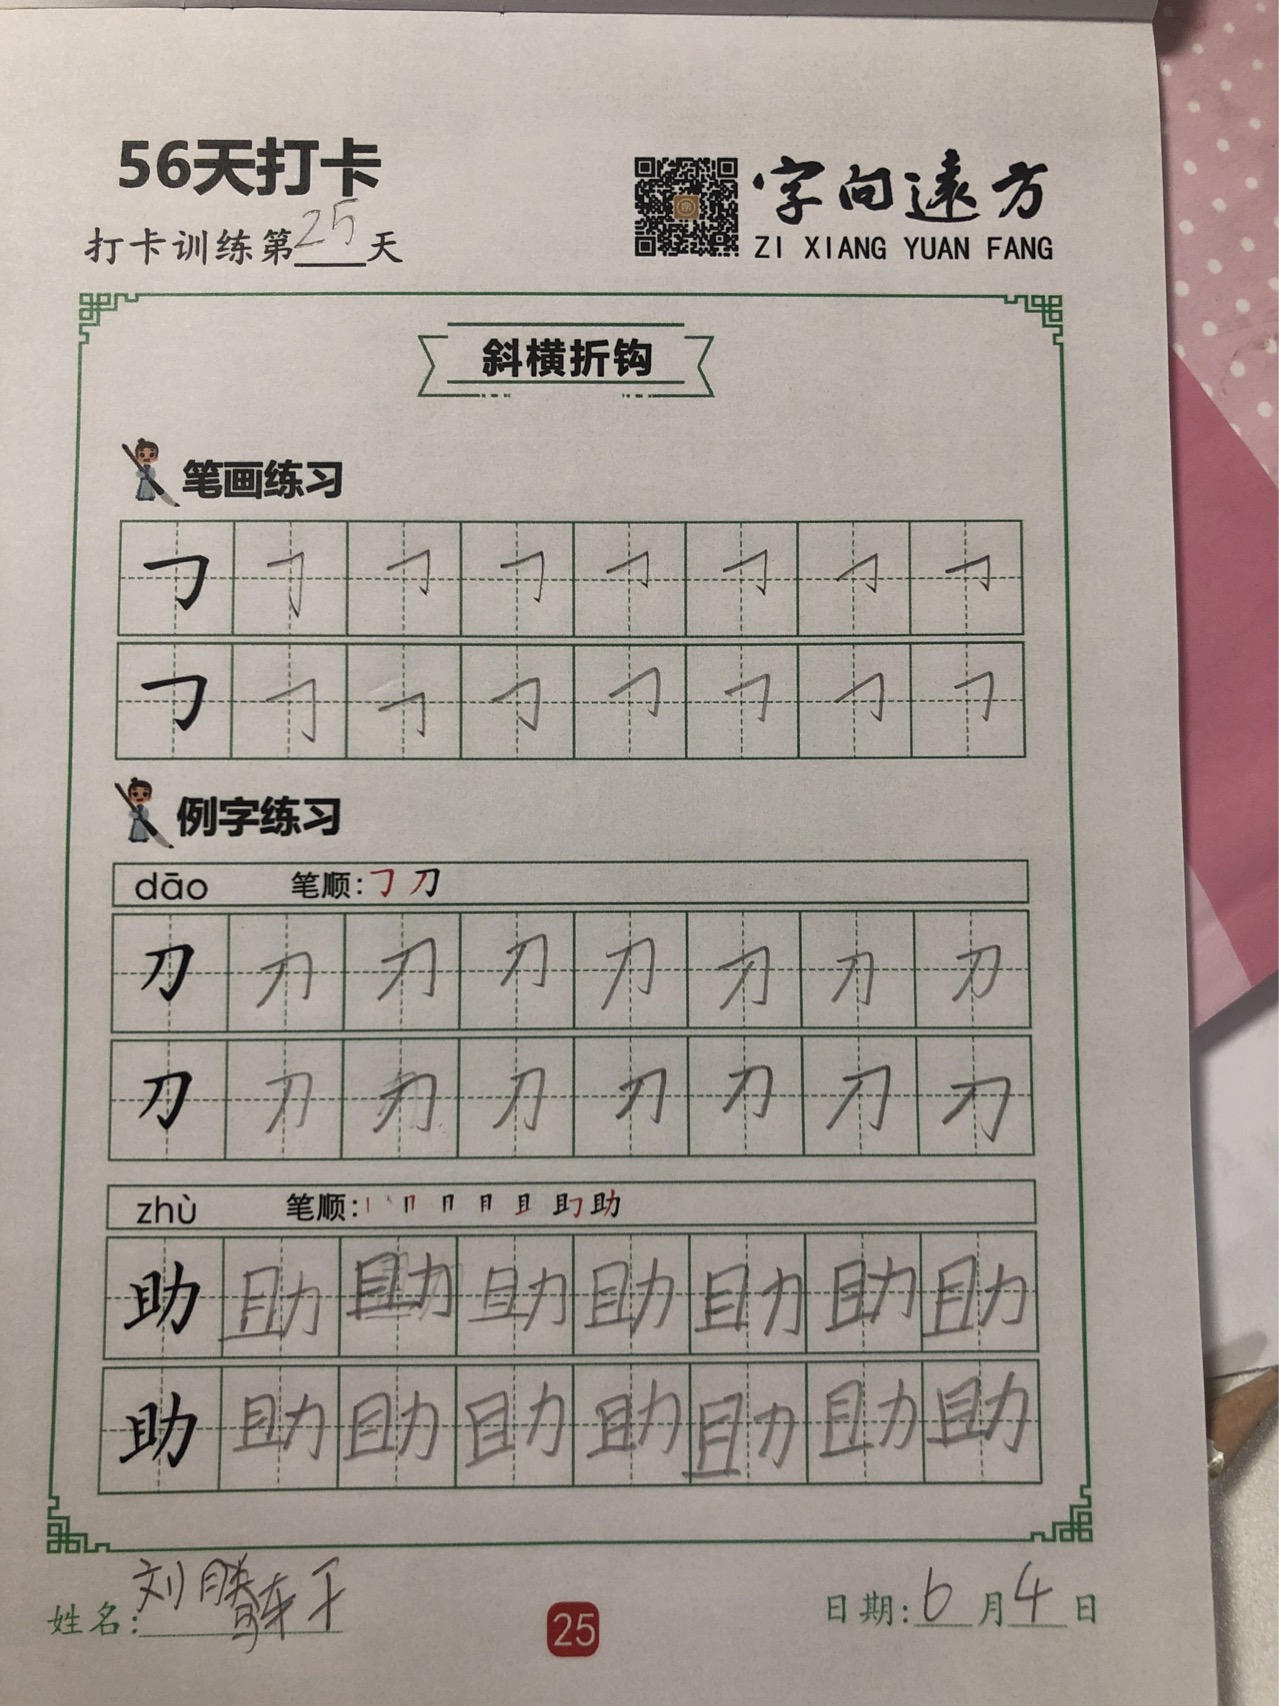 56天打卡
打卡训练第25天
字向遠方
ZI XIANG YUAN FANG
斜横折钩
笔画练习
㇆ ㇆ ㇆ ㇆ ㇆ ㇆ ㇆ ㇆
㇆ ㇆ ㇆ ㇆ ㇆ ㇆ ㇆ ㇆
例字练习
dāo 笔顺:㇆ 刀
刀 刀 刀 刀 刀 刀 刀 刀
刀 刀 刀 刀 刀 刀 刀 刀
zhù 笔顺:丨 冂 冂 月 且 助 助
助 助 助 助 助 助 助 助
助 助 助 助 助 助 助 助
姓名:刘
25
日期:6月4日